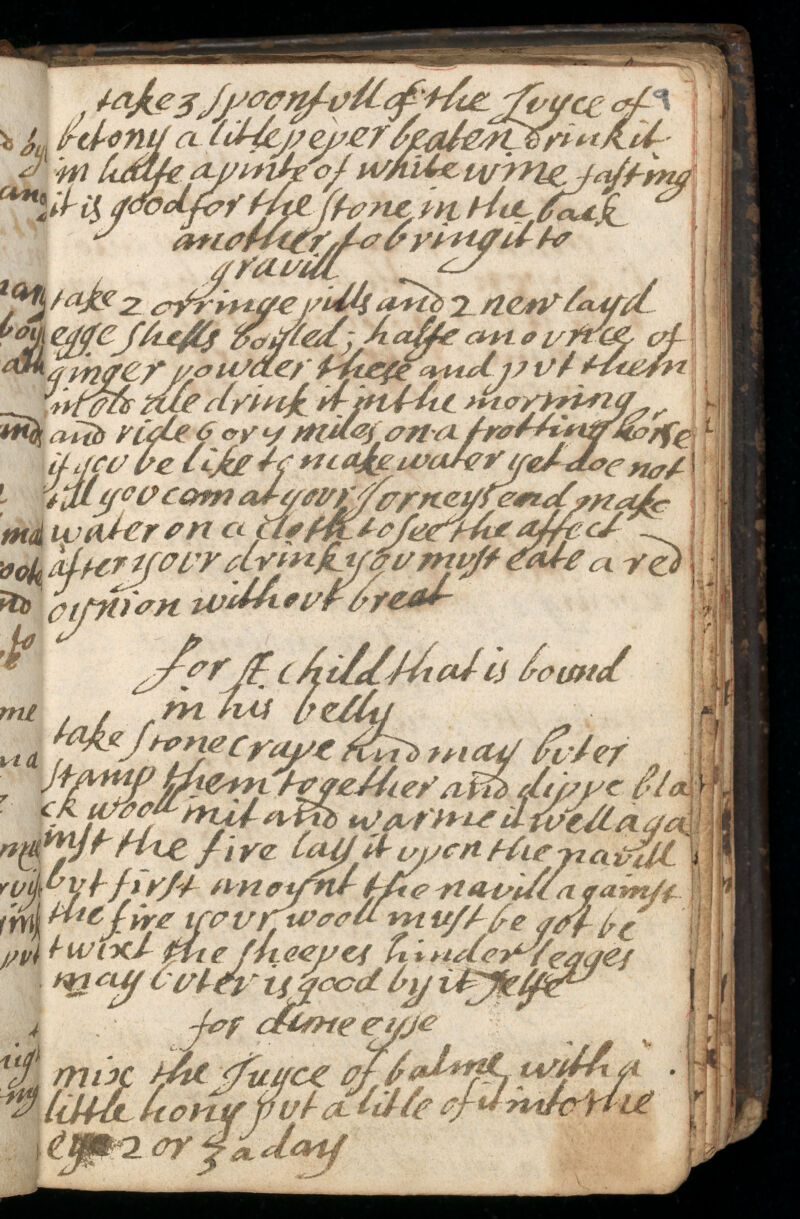 take 3 spoonfull of the Juyce of 9
betony a litle peper beaten drink it
in halfe a pinte of white wine fasting
it is good for the stone in the back
another to bring it to
gravill
take 2 orringe pills and 2 new layd
egge shells boyled; halfe an ounce of
ginger powder these and put them
in old ale drink it in the morning
and ride 6 or 7 miles on a trotting horse
if you be like to make water yet doe not
till you com at your Jorneys end make
water on a cloth to see the affect
after your drink you must eate a red
oynion without breat
for A child that is bound
in his belly
take stonecrape and may buter
stamp them together and dippe bla
ck wooll init and warme it well aga
inst the fire lay it upon the navill
but first anoynt the navill against
the fire your wooll must be got be
twixt the sheepes hinder legges
may buter is good by it selfe
for dime eyse
mix the Juyce of balme with a
little hony put a litle of it into the
eye 2 or 3 a day